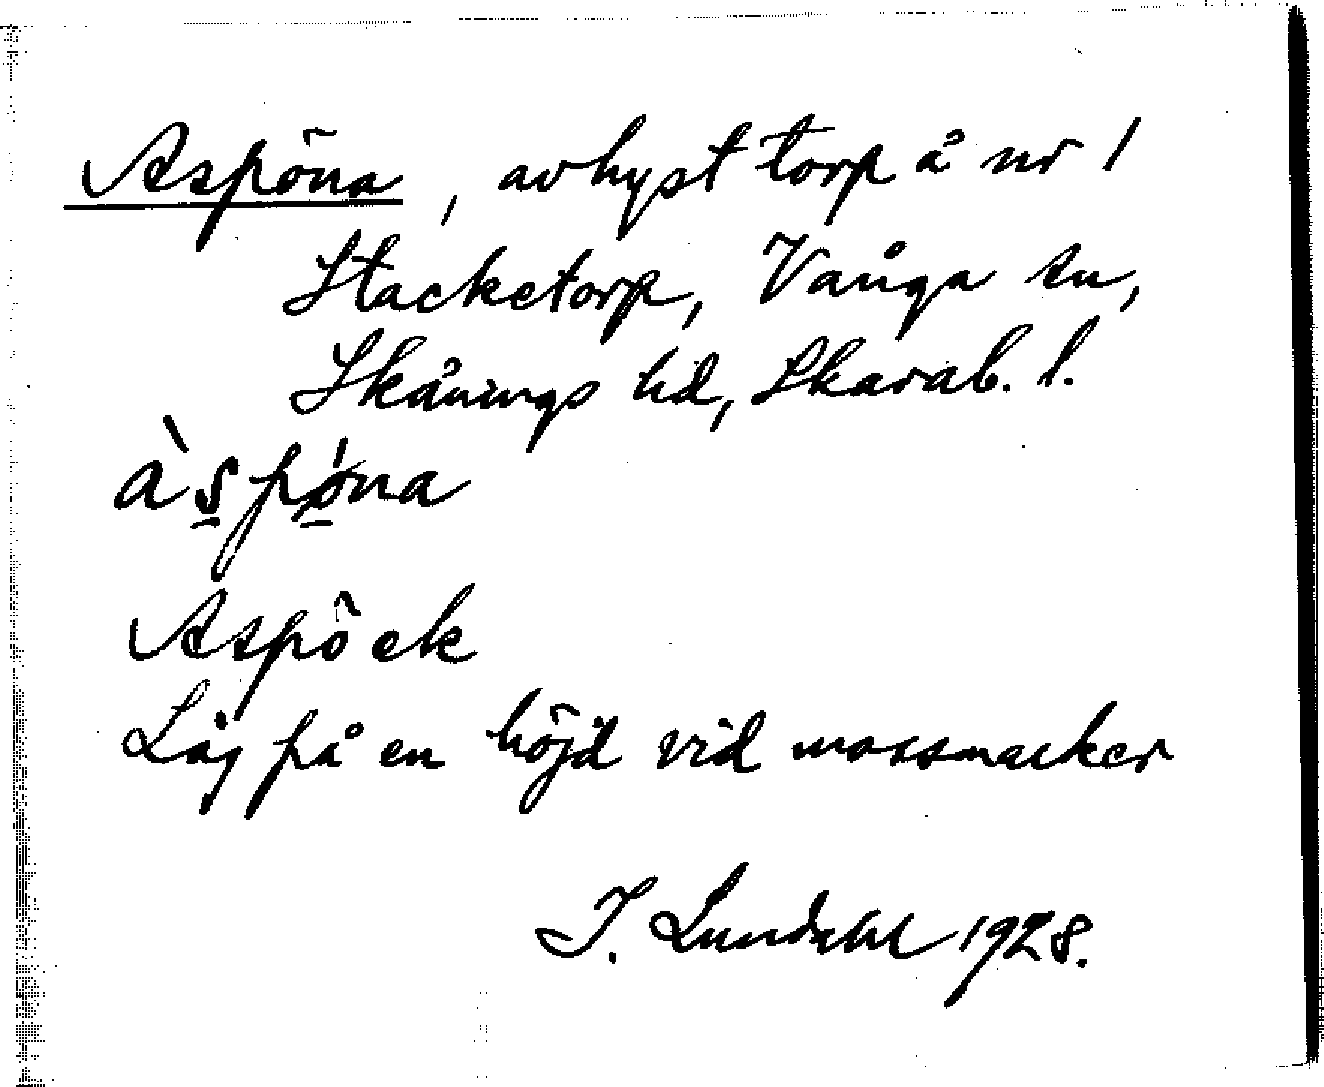 Aspöna, avhyst torp å nr 1
Stacketorp, Vånga sn,
Skånings hd, Skarab. l.
àspǿna
Aspö ek
Låg på en höjd vid mossmarker
I. Lundahl 1928.